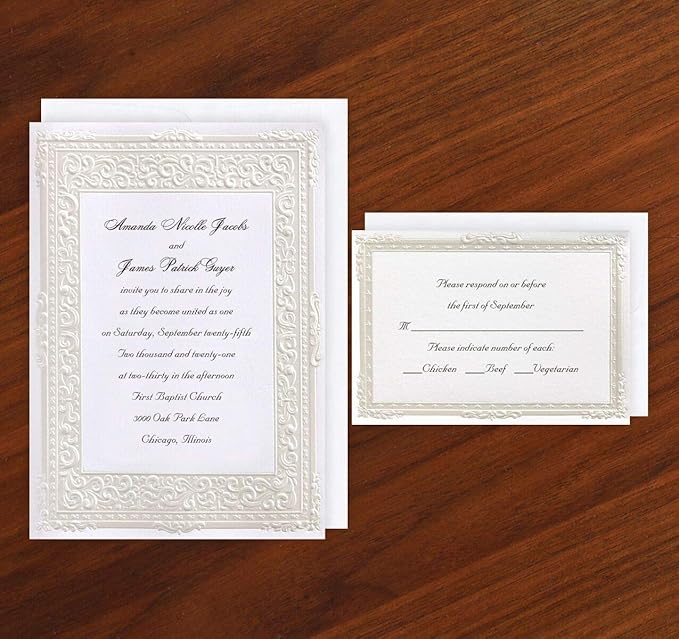 Amanda Nicolle Jacobs
and
James Patrick Guyer
invite you to share in the joy
as they become united as one
on Saturday, September twenty-fifth
Two thousand and twenty-one
at two-thirty in the afternoon
First Baptist Church
3000 Oak Park Lane
Chicago, Illinois
Please respond on or before
the first of September
M
Please indicate number of each:
Chicken Beef Vegetarian